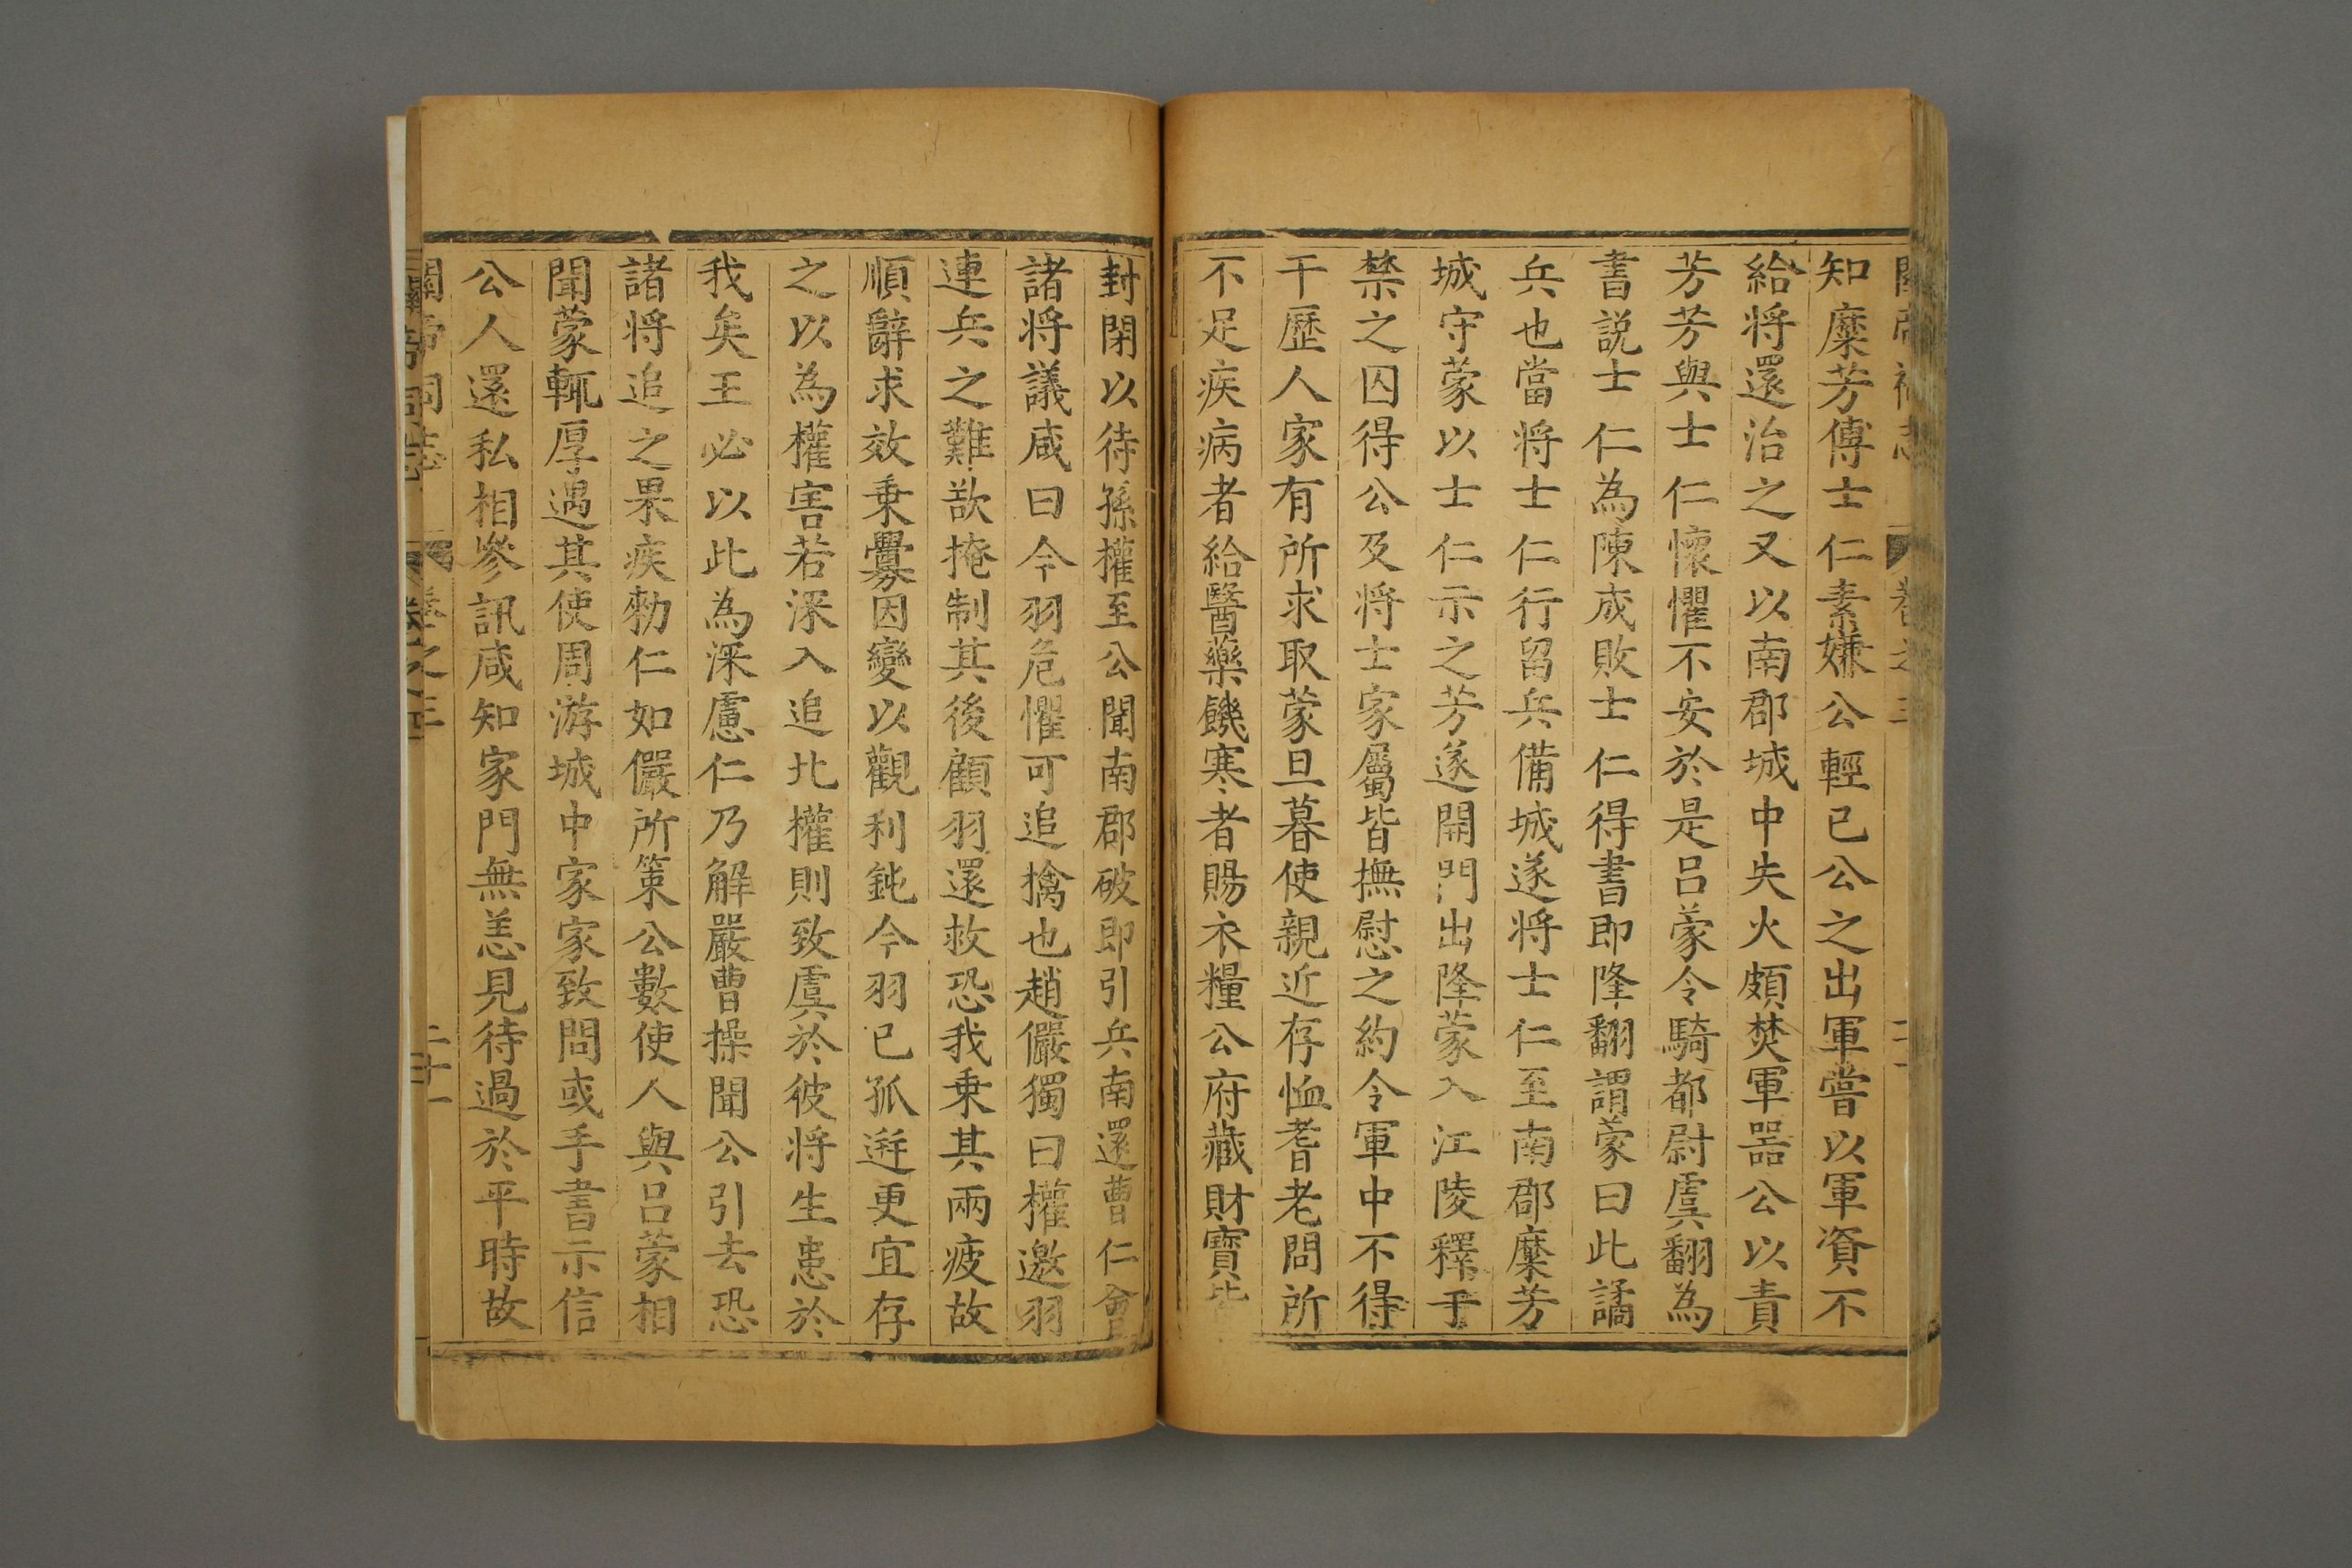 知糜芳傅士仁素嫌公輕已公之出軍嘗以軍資不
給將還治之又以南郡城中失火頗焚軍器公以責
芳芳與士仁懷懼不安於是呂蒙令騎都尉虞翻為
書説士仁為陳成敗士仁得書即降翻謂蒙曰此譎
兵也當將士仁行留兵備城遂將士仁至南郡糜芳
城守蒙以士仁示之芳遂開門出降蒙入江陵釋于
禁之囚得公及将士家屬皆撫慰之約令軍中不得
干歷人家有所求取蒙旦暮使親近存恤耆老問所
不足疾病者給醫藥饑寒者賜衣糧公府藏財寶皆
封閉以待孫權至公聞南郡破即引兵南還曹仁會
諸将議咸曰今羽危懼可追擒也趙儼獨曰權邀羽
連兵之難欲掩制其後顧羽還救恐我乗其兩疲故
順辭求效乗釁因變以觀利鈍今羽已孤迸更宜存
之以為權害若深入追北權則致虞於彼将生患於
我矣王必以此為深慮仁乃解嚴曹操聞公引去恐
諸将追之果疾勑仁如儼所策公數使人與呂蒙相
聞蒙輒厚遇其使周游城中家家致問或手書示信
公人還私相參訊咸知家門無恙見待過於平時故
關帝祠志
卷之三
二十一